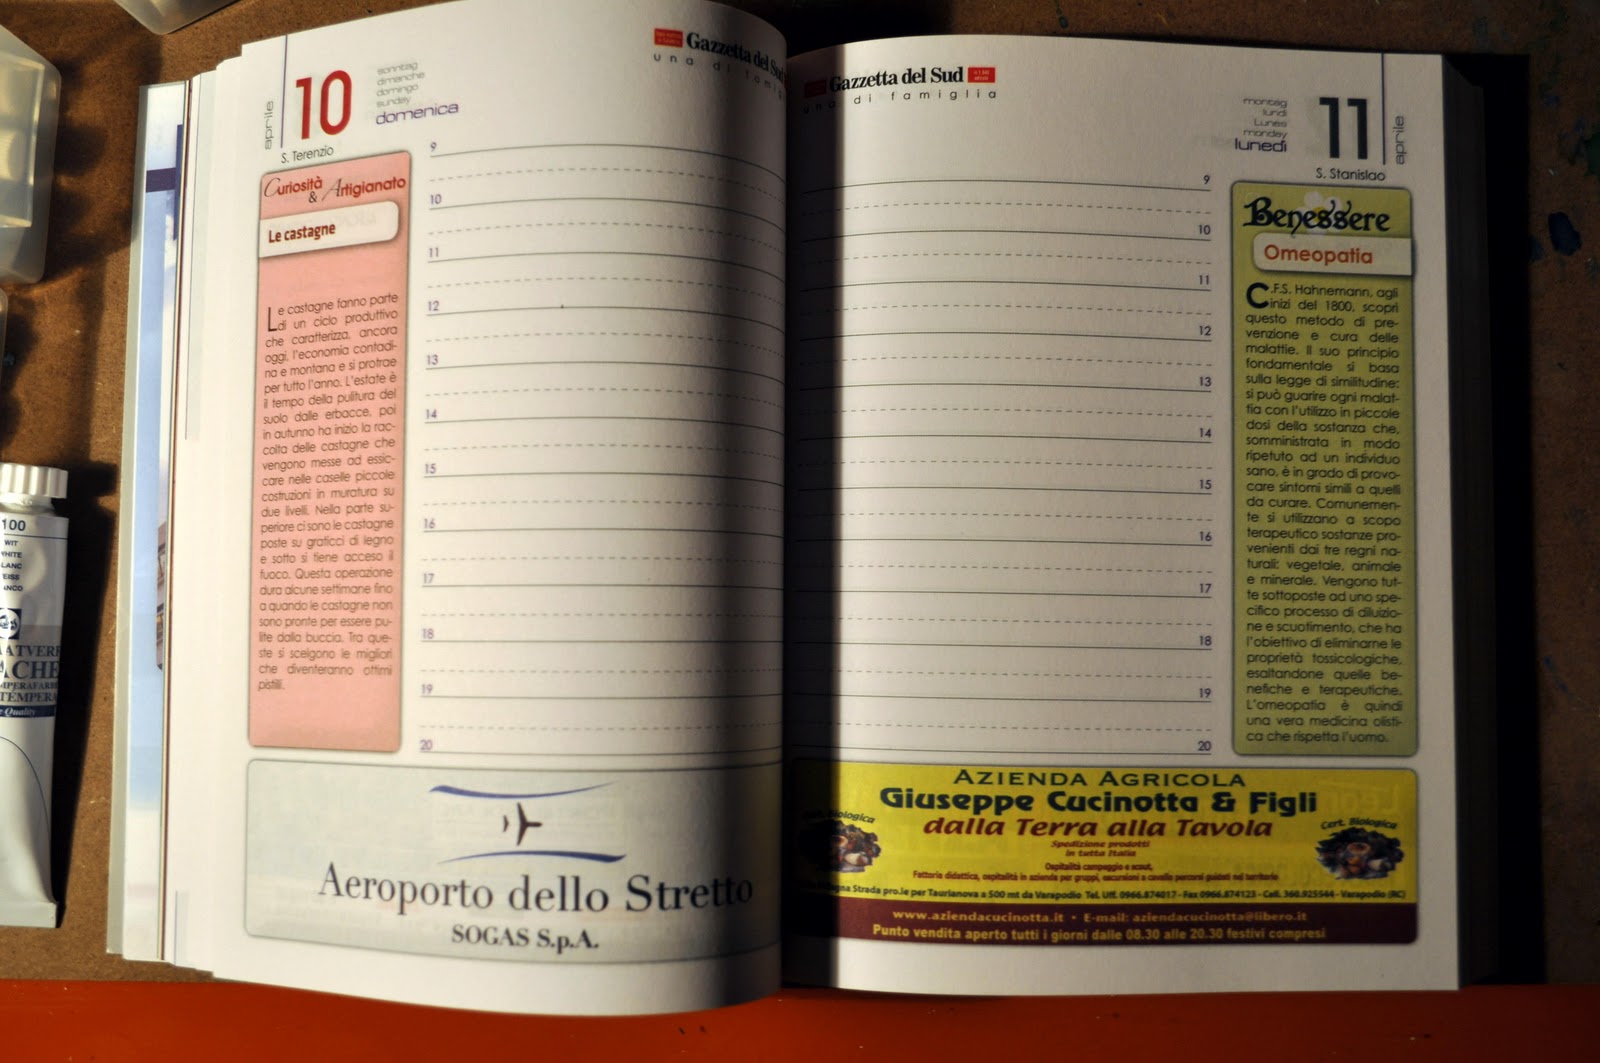 100
WIT
WHITE
BLANC
WEISS
TEMPERA
Quality
aprile
10
sonntag
dimanche
domingo
sunday
domenica
S. Terenzio
Gazzetta del Sud
una di famiglia
Curiosità
& Artigianato
Le castagne
Le castagne fanno parte
di un ciclo produttivo
che caratterizza, ancora
oggi, l'economia contadi-
na e montana e si protrae
per tutto l'anno. L'estate è
il tempo della pulitura del
suolo dalle erbacce, poi
in autunno ha inizio la rac-
colta delle castagne che
vengono messe ad essic-
care nelle caselle piccole
costruzioni in muratura su
due livelli. Nella parte su-
periore ci sono le castagne
poste su graticci di legno
e sotto si tiene acceso il
fuoco. Questa operazione
dura alcune settimane fino
a quando le castagne non
sono pronte per essere pu-
lite dalla buccia. Tra que-
ste si scelgono le migliori
che diventeranno ottimi
pistilli.
9
10
11
12
13
14
15
16
17
18
19
20
Aeroporto dello Stretto
SOGAS S.p.A.
Gazzetta del Sud
una di famiglia
montag
lundi
Lunes
monday
lunedì
11
aprile
S. Stanislao
9
10
11
12
13
14
15
16
17
18
19
20
Benessere
Omeopatia
C.F.S. Hahnemann, agli
inizi del 1800, scoprì
questo metodo di pre-
venzione e cura delle
malattie. Il suo principio
fondamentale si basa
sulla legge di similitudine:
si può guarire ogni malat-
tia con l'utilizzo in piccole
dosi della sostanza che,
somministrata in modo
ripetuto ad un individuo
sano, è in grado di provo-
care sintomi simili a quelli
da curare. Comunemen-
te si utilizzano a scopo
terapeutico sostanze pro-
venienti dai tre regni na-
turali: vegetale, animale
e minerale. Vengono tut-
te sottoposte ad uno spe-
cifico processo di diluizio-
ne e scuotimento, che ha
l'obiettivo di eliminarne le
proprietà tossicologiche,
esaltandone quelle be-
nefiche e terapeutiche.
L'omeopatia è quindi
una vera medicina olisti-
ca che rispetta l'uomo.
AZIENDA AGRICOLA
Giuseppe Cucinotta & Figli
dalla Terra alla Tavola
Spedizione prodotti
in tutta Italia
Cert. Biologica
Cert. Biologica
Ospitalità campeggio e scout,
Fattoria didattica, ospitalità in azienda per gruppi, escursioni e cavallo percorsi guidati nel territorio
Strada pro.le per Taurianova a 500 mt da Varapodio Tel. Uff. 0966.874017 - Fax 0966.874123 - Cell. 360.925544 - Varapodio (RC)
www.aziendacucinotta.it • E-mail: aziendacucinotta@libero.it
Punto vendita aperto tutti i giorni dalle 08.30 alle 20.30 festivi compresi